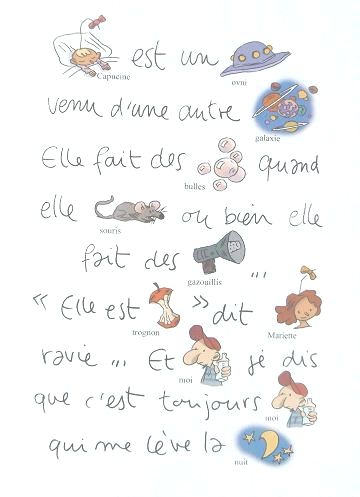 est un
Capucine ovni
venu d'une autre
galaxie
Elle fait des quand
bulles
elle ou bien elle
souris
fait des ...
gazouillis
« Elle est » dit
trognon Mariette
ravie ... Et je dis
moi
que c'est toujours
moi
qui me lève la
nuit